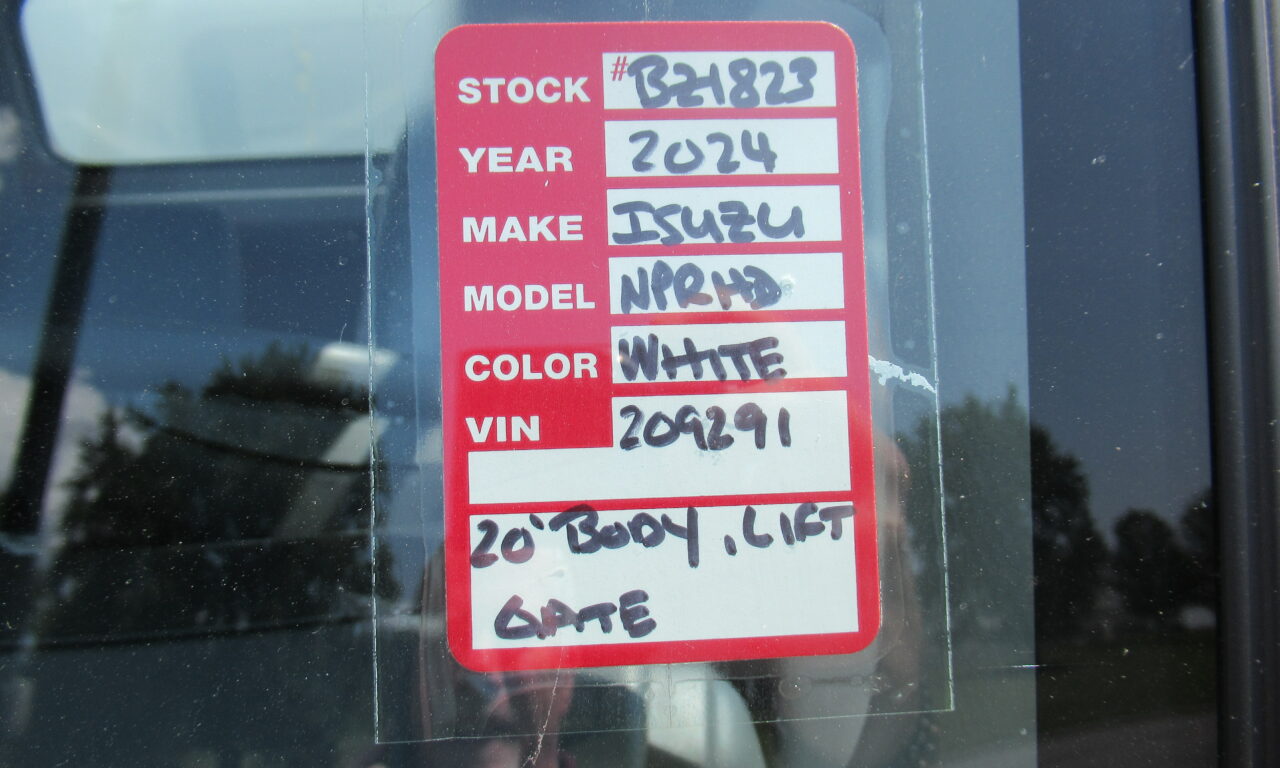 STOCK #BZ1823
YEAR 2024
MAKE ISUZU
MODEL NPRHD
COLOR WHITE
VIN 209291
20' BODY, LIFT
GATE